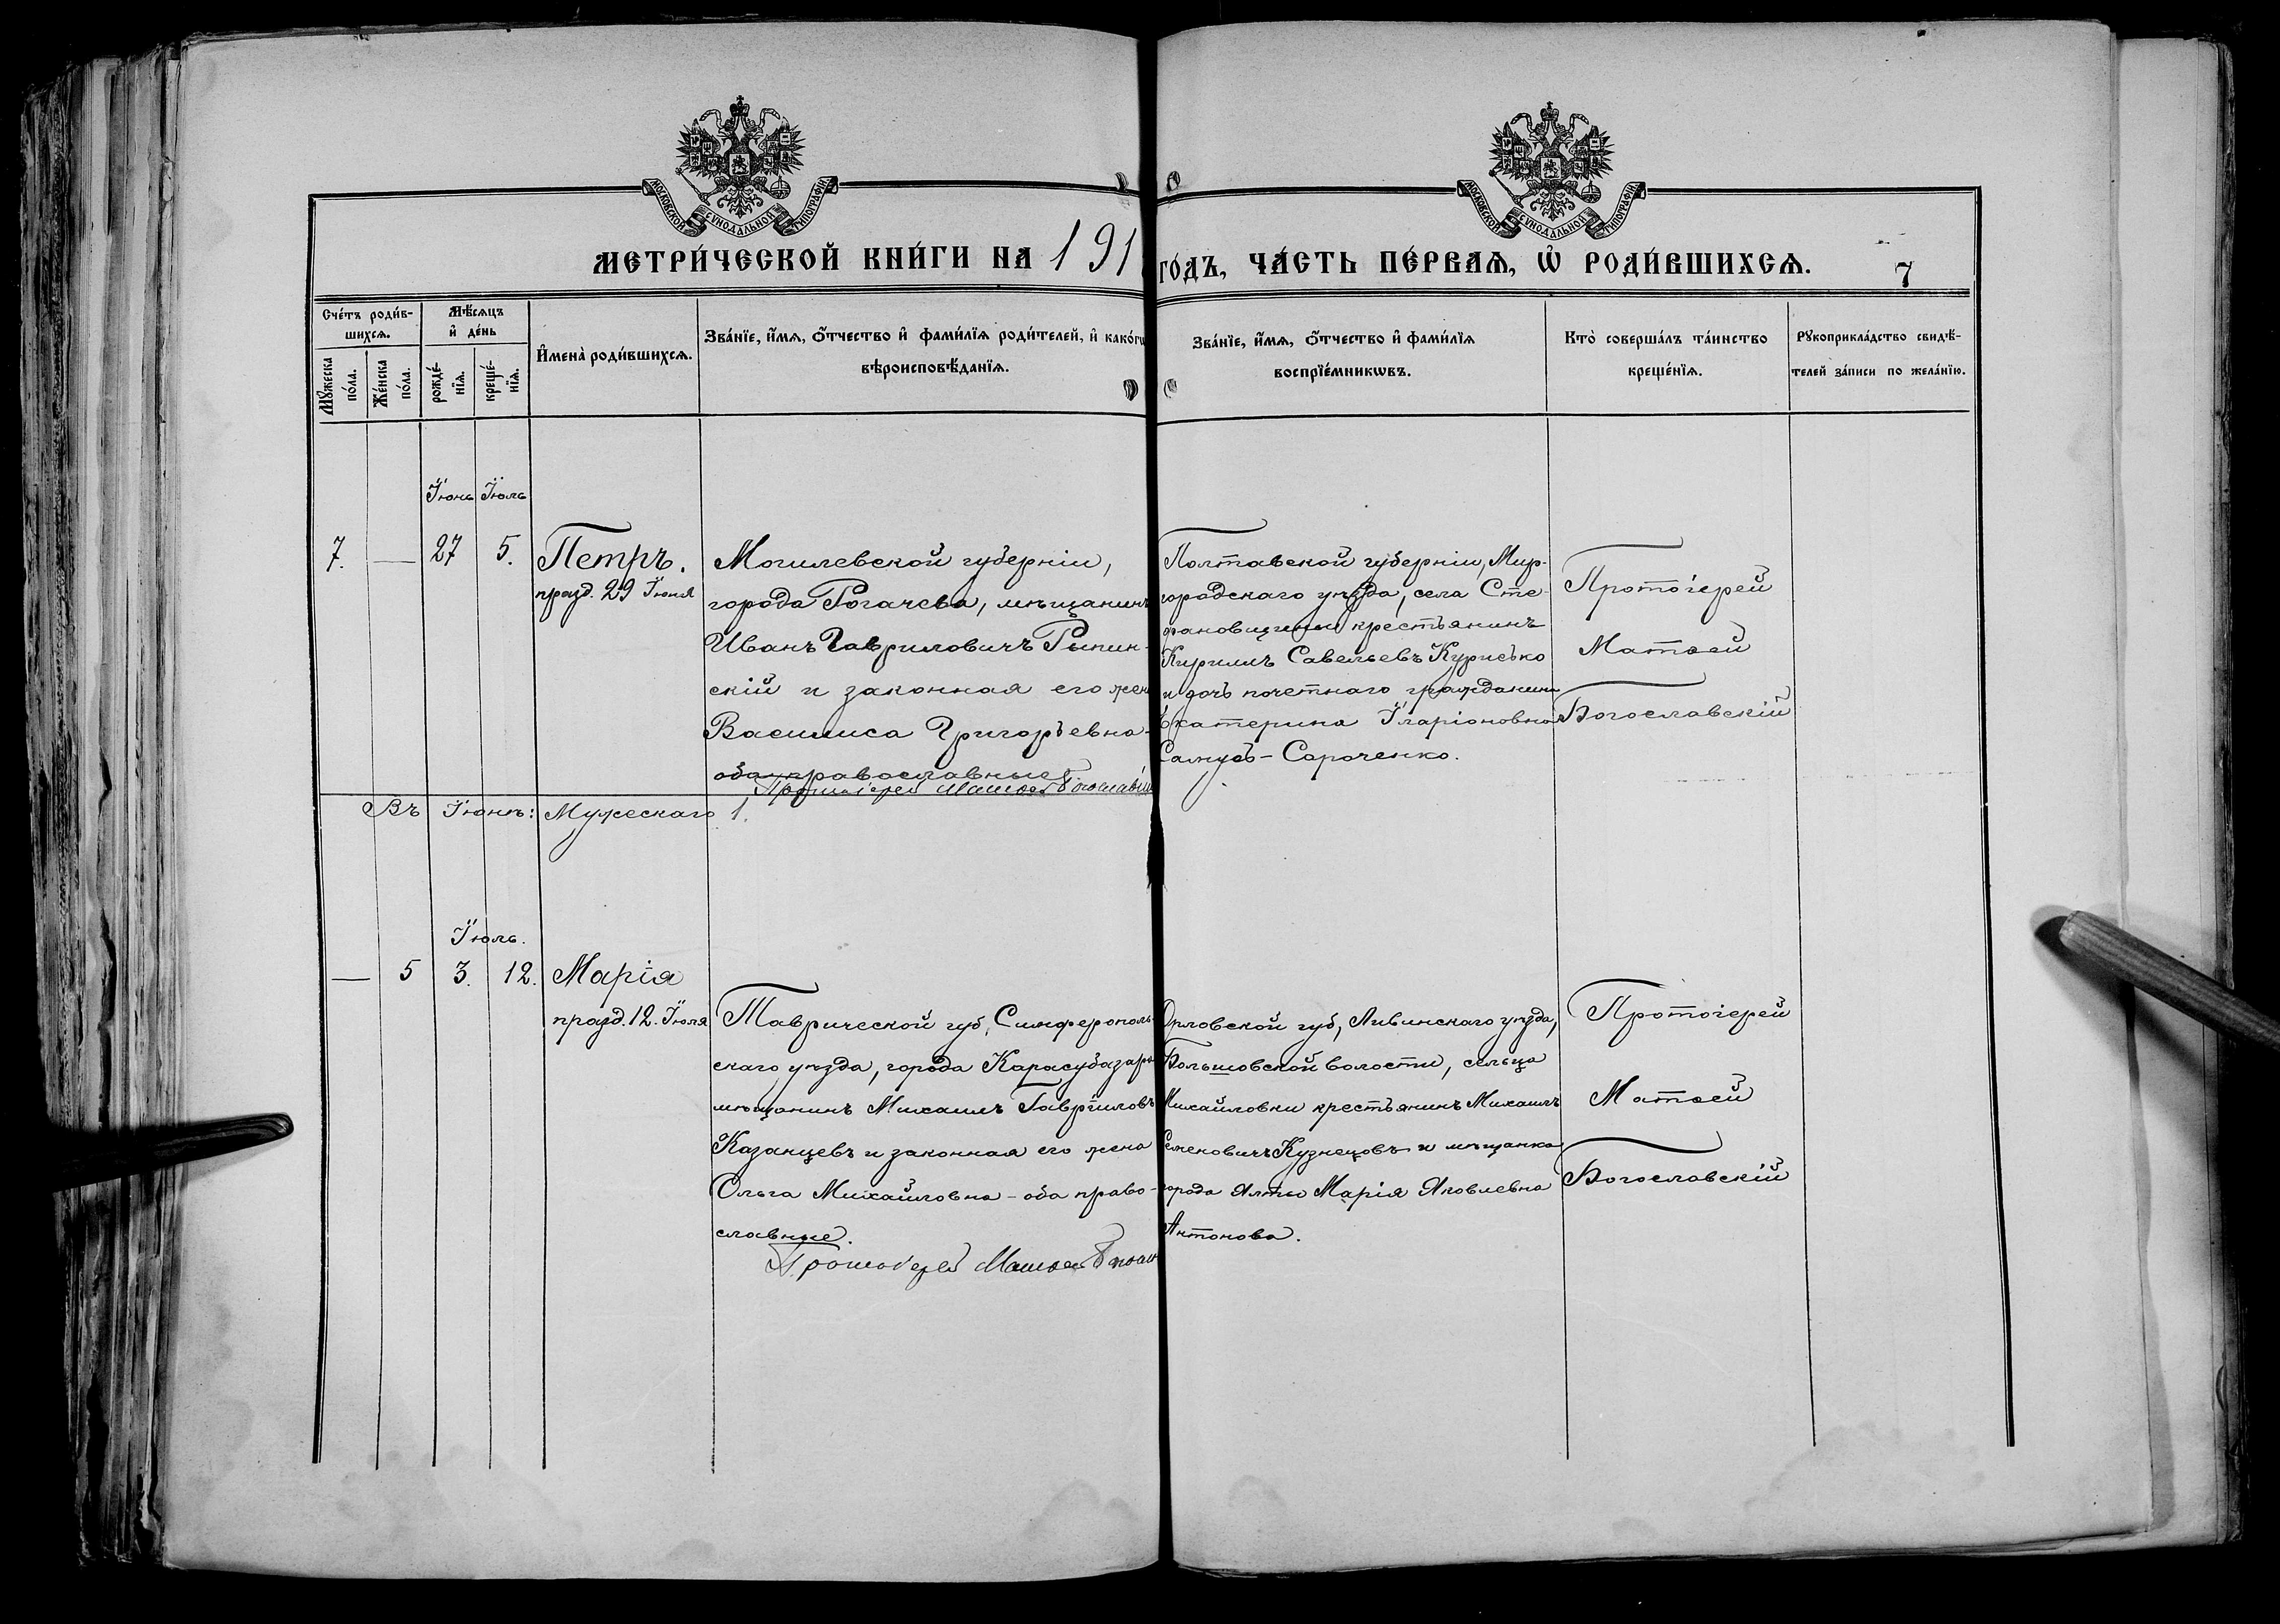 МОСКОВСКОЙ СѴНОДАЛЬНОЙ ТИПОГРАФІИ
МОСКОВСКОЙ СѴНОДАЛЬНОЙ ТИПОГРАФІИ
МЕТРИ́ЧЕСКОЙ КНИ́ГИ НА 191 ГО́ДЪ, ЧА́СТЬ ПЕ́РВАѦ, Ѡ҆ РОДИ́ВШИХСѦ.
7
Сче́тъ роди́в-
шихсѧ.
Мꙋ́жеска
по́ла.
Же́нска
по́ла.
Мѣ́сѧцъ
и҆ де́нь
рожде́-
нїѧ.
креще́-
нїѧ.
И҆мена̀ роди́вшихсѧ.
Зва́нїе, и҆́мѧ, ѻ҆́тчество и҆ фами́лїѧ роди́телей, и҆ како́гѡ
вѣроисповѣ́данїѧ.
Зва́нїе, и҆́мѧ, ѻ҆́тчество и҆ фами́лїѧ
воспрїе́мникѡвъ.
Кто̀ соверша́лъ та́инство
креще́нїѧ.
Рꙋкоприкла́дство свидѣ́-
телей за́писи по жела́нїю.
Іюнь Іюль
7. — 27 5. Петръ.
празд. 29 Іюня
Могилевской губерніи,
города Рогачева, мѣщанинъ
Иванъ Гавриловичъ Рыпин-
скій и законная его жен
Василиса Григорьевна-
оба православные
Протоіерей Матѳей Богославскій
Полтавской губерніи, Мир-
городскаго уѣзда, села Сте-
крестьянинъ
Кириллъ Савельевъ Курисько
и дочь почетнаго гражданина
Екатерина Иларіоновна
Самусь-Сароченко.
Протоіерей
Матѳей
Богославскій
Въ Іюнѣ: Мужескаго 1.
Іюль.
— 5 3. 12. Марія
празд. 12. Іюля
Таврической губ., Симферополь-
скаго уѣзда, города Карасубазара
мѣщанинъ Михаилъ Гавріиловъ
Казанцевъ и законная его жена
Ольга Михайловна - оба право-
славные.
Протоіерей Матѳей Богосл
Орловской губ., Ливинскаго уѣзда,
Большовской волости, сельца
Михайловки крестьянинъ Михаилъ
Семеновичъ Кузнецовъ и мѣщанка
города Ялты Марія Яковлевна
Антонова.
Протоіерей
Матѳей
Богославскій